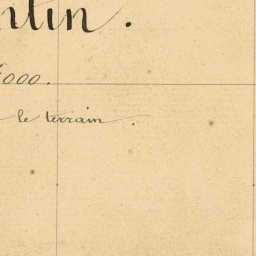 ntin.
000.
le terrain.